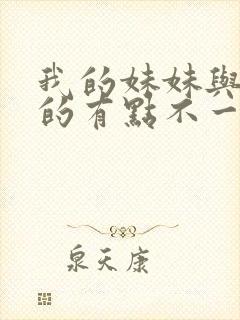 我的妹妹與
的有點不一
泉天康